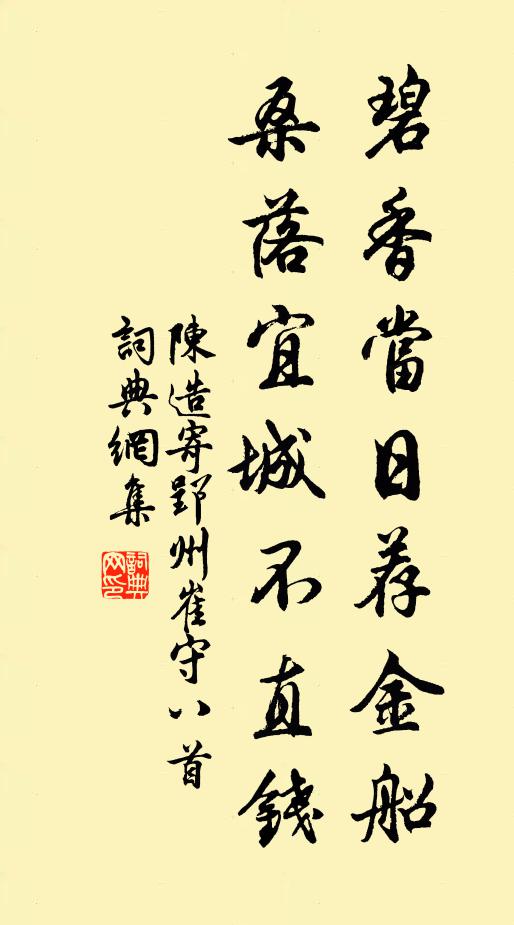 碧香當日荐金船
桑落宜城不直錢
陳造寄郢州崔守八首
詞典網集
詞典網印